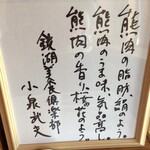 熊肉の脂肪絹のよう。
熊肉のうま味気品高し。
熊肉の香り橘花のよう。
鏡湖美食倶楽部
小泉武夫